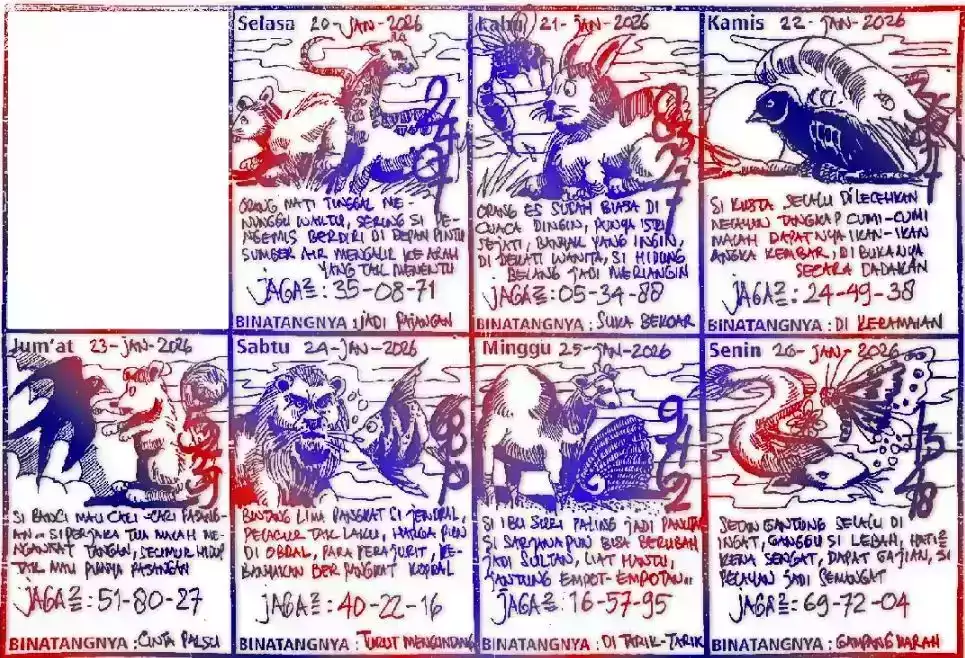 Selasa 20-JAN-2026
ORANG MATI TUNGGAL ME-
NUNGGU WAKTU, SERING SI PE-
NGEMIS BERDIRI DI DEPAN PINTU
SUMBER AIR MENGALIR KE ARAH
YANG TAK MENENTU
JAGA2 : 35-08-71
BINATANGNYA : JADI PAJANGAN
Rabu 21-JAN-2026
ORANG ES SUDAH BIASA DI
CUACA DINGIN, PUNYA ISTRI
SEJATI, BANYAK YANG INGIN,
DI DEKATI WANITA, SI HIDUNG
BELANG JADI MERIANGIN
JAGA2 : 05-34-88
BINATANGNYA : SUKA BEKOAR
Kamis 22-JAN-2026
SI KUSTA SELALU DILECEHKAN
NELAYAN TANGKAP CUMI-CUMI
MALAH DAPATNYA IKAN-IKAN
ANGKA KEMBAR, DIBUKANYA
SECARA DADAKAN
JAGA2 : 24-49-38
BINATANGNYA : DI KERAMAIAN
Jum'at 23-JAN-2026
SI BANCI MAU CARI-CARI PASANG-
AN.. SI PERJAKA TUA MALAH ME-
NGANGKAT TANGAN, SEUMUR HIDUP
TAK MAU PUNYA PASANGAN
JAGA2 : 51-80-27
BINATANGNYA : CINTA PALSU
Sabtu 24-JAN-2026
BINTANG LIMA PANGKAT SI JENDRAL,
PELACUR TAK LAKU, HARGA PUN
DI OBRAL, PARA PERAJURIT, KE-
BANYAKAN BERPANGKAT KOPRAL
JAGA2 : 40-22-16
BINATANGNYA : TURUT MENGUNDANG
Minggu 25-JAN-2026
SI IBU SURI PALING JADI PANUTAN
SI SARJANA PUN BISA BERUBAH
JADI SULTAN, LIAT HANTU,
JANTUNG EMPOT-EMPOTAN..
JAGA2 : 16-57-95
BINATANGNYA : DI TARIK-TARIK
Senin 26-JAN-2026
GANTUNG SELALU DI
INGAT, GANGGU SI LEBAH, HATI2
KENA SENGAT, DAPAT GAJIAN, SI
PELAYAN JADI SEMANGAT
JAGA2 : 69-72-04
BINATANGNYA : GAMPANG MARAH